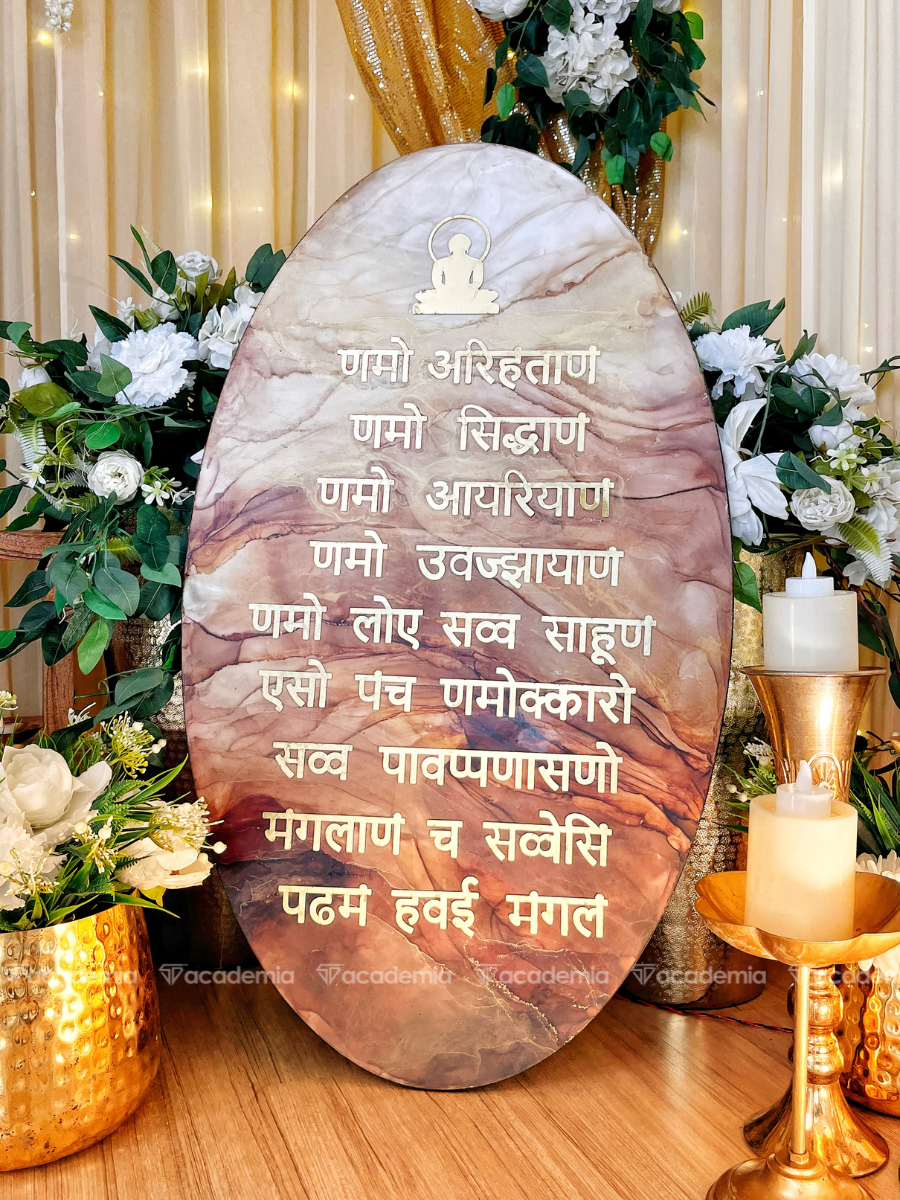 णमो अरिहंताणं
णमो सिद्धाणं
णमो आयरियाणं
णमो उवज्झायाणं
णमो लोए सव्व साहूणं
एसो पंच णमोक्कारो
सव्व पावप्पणासणो
मंगलाणं च सव्वेसिं
पढमं हवई मंगलं
academia academia academia academia academia